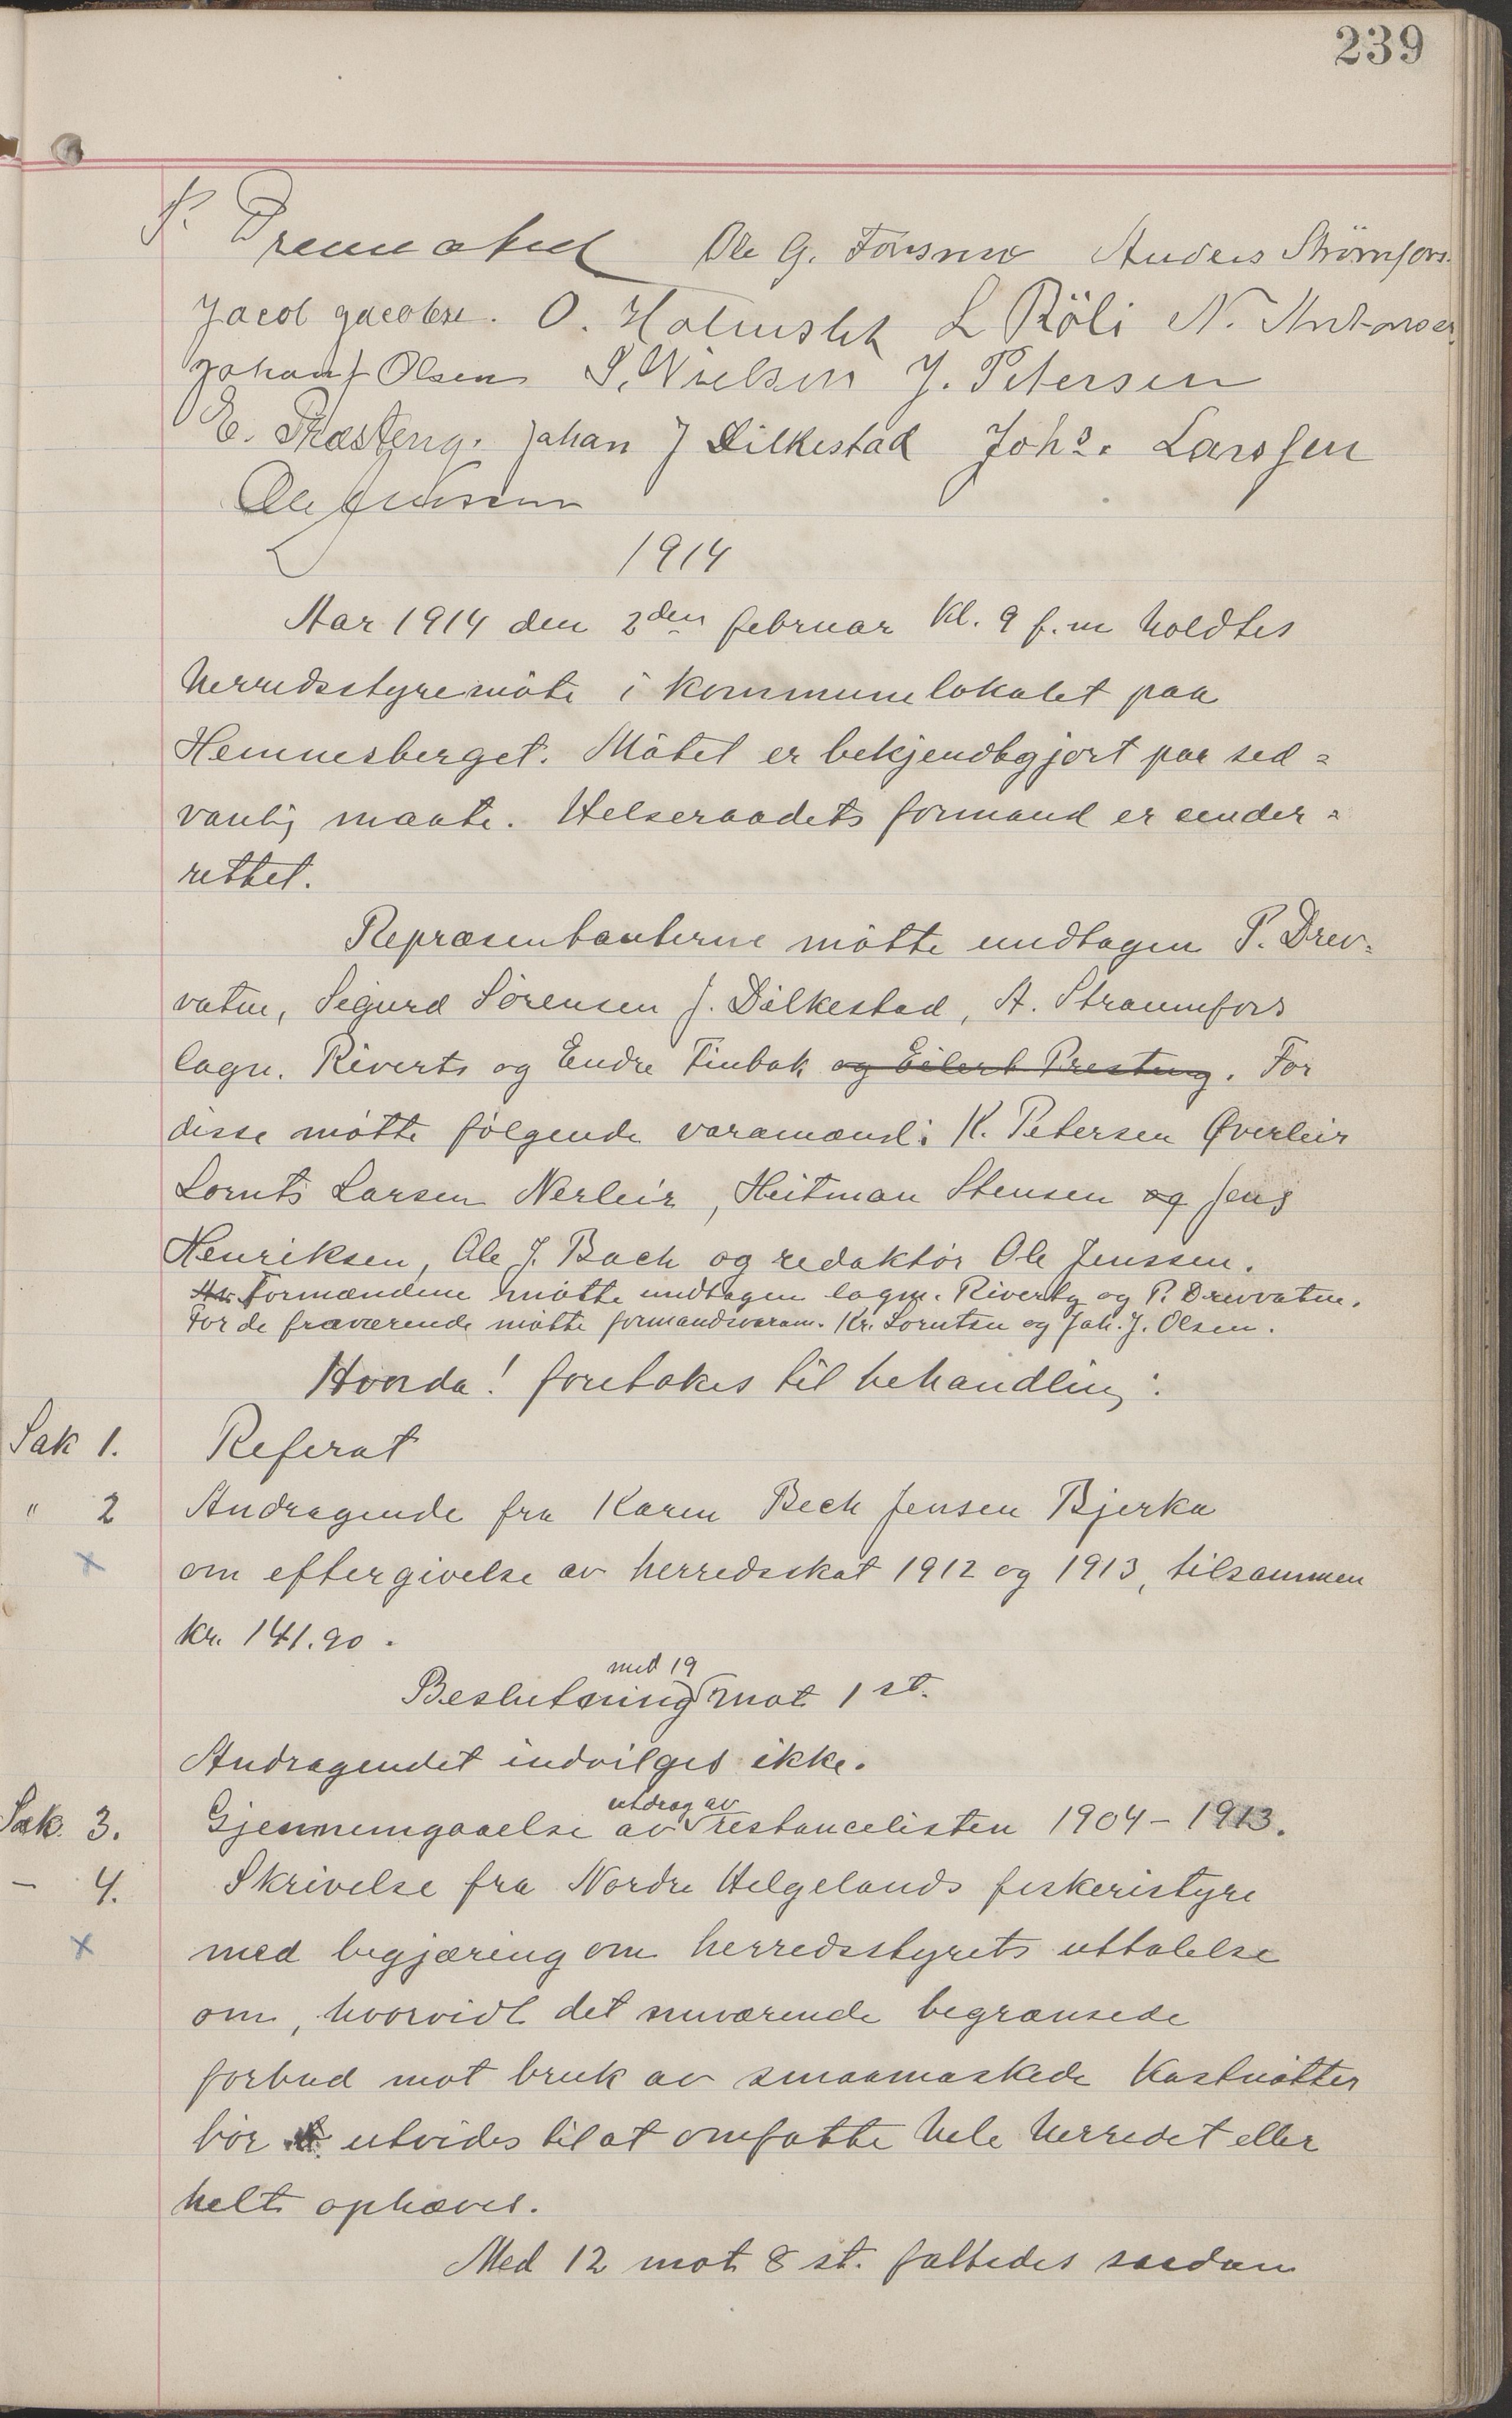 239
P. Drevvatn Ole G. Forsmo Anders Strömfors.
Jacob Jacobse. O. Holmslet L Röli N. Antonsen
Johan J Olsen S. Nielsen J. Petersen
E. Præsteng. Johan J Dilkestad Johs. Larssen
Ole Jenssen
1914
Aar 1914 den 2den februar kl. 9 f.m holdtes
herredsstyremöte i kommunelokalet paa
Hemnesberget. Mötet er bekjendtgjort paa sed=
vanlig maate. Helseraadets formand er under=
rettet.
Repræsentanterne mötte undtagen P. Drev=
vatne, Sigurd Sörensen J. Dilkestad, A. Straumfors
lagm. Rivertz og Endre Finbak og Eilert Presteng. For
disse mötte fölgende varamænd: K. Petersen Øverleir
Lornts Larsen Nerleir, Heitman Stensen og Jens
Henriksen, Ole J. Bach og redaktör Ole Jenssen.
Formændene mötte undtagen lagm. Rivertz og P. Drevvatne.
For de fraværende mötte formandsvaram. Kr. Lorntsen og Joh. J. Olsen.
Hvorda! foretokes til behandling:
Sak 1. Referat
" 2 Andragende fra Karen Bech Jensen Bjerka
x om eftergivelse av herredsskat 1912 og 1913, tilsammen
kr. 141.90.
med 19
Beslutning mot 1 st.
Andragendet indvilges ikke.
utdrag av
Sak 3. Gjennemgaaelse av restancelisten 1904-1913.
- 4. Skrivelse fra Nordre Helgelands fiskeristyre
x med begjæring om herredsstyrets uttalelse
om, hvorvidt det nuværende begrænsede
forbud mot bruk av smaamaskede kastnötter
bör utvides til at omfatte hele herredet eller
helt ophæves.
Med 12 mot 8 st. fattedes saadan